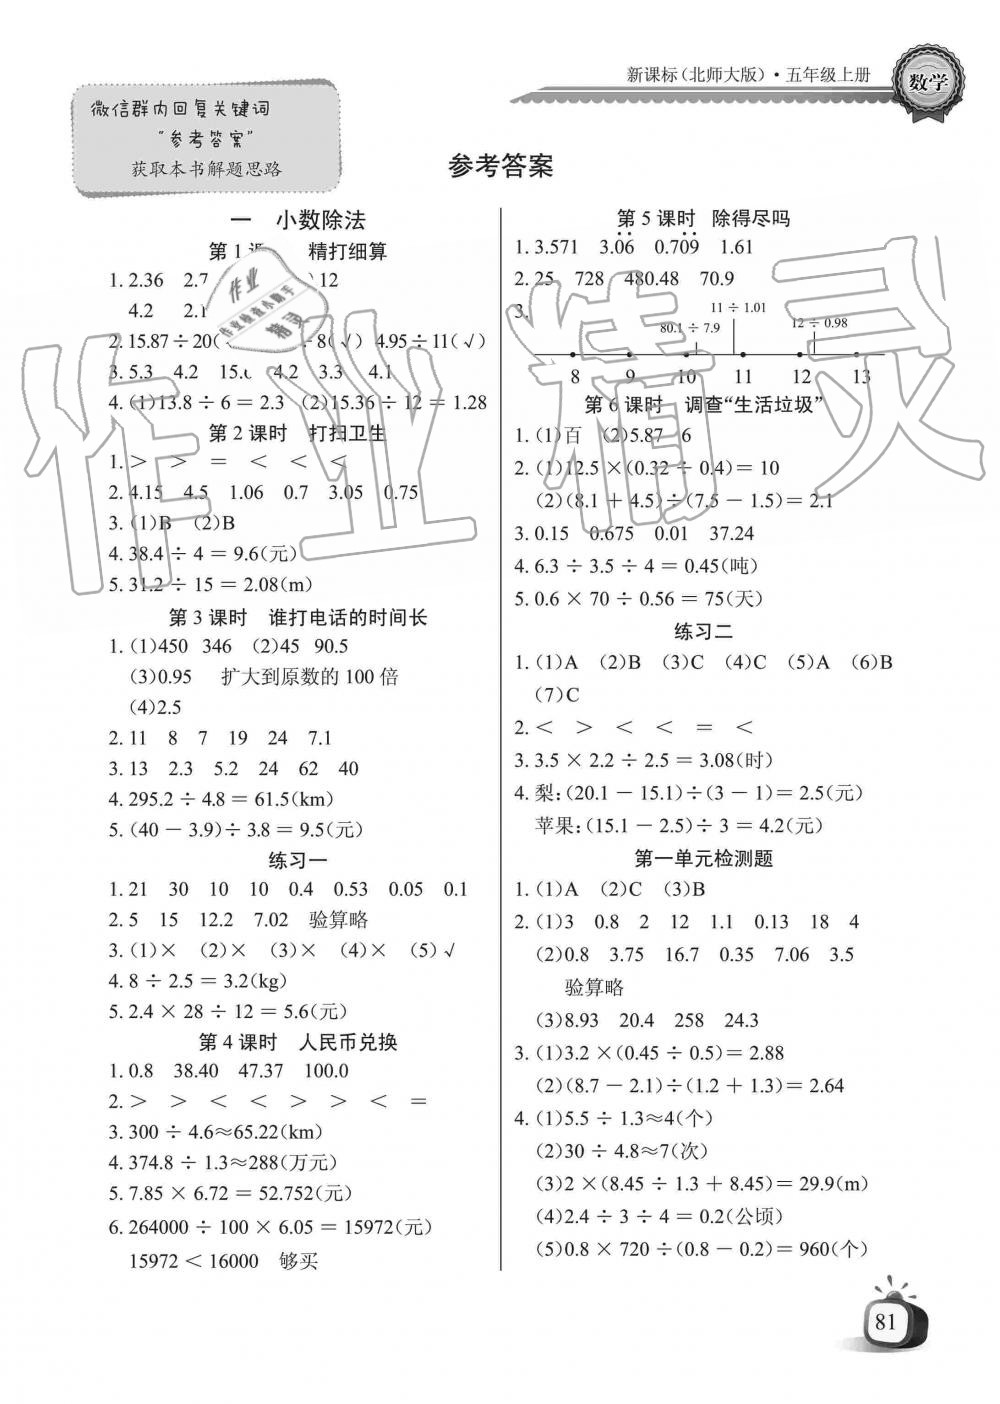 新课标(北师大版)·五年级上册
数学
微信群内回复关键词
"参考答案"
获取本书解题思路
参考答案
一 小数除法
第1课 精打细算
1. 2.36 2.7 12
4.2 2.1
2. 15.87÷20( 8(√) 4.95÷11(√)
3. 5.3 4.2 15. 4.2 3.3 4.1
4. (1)13.8÷6=2.3 (2)15.36÷12=1.28
第2课时 打扫卫生
1. > > = < < <
2. 4.15 4.5 1.06 0.7 3.05 0.75
3. (1)B (2)B
4. 38.4÷4=9.6(元)
5. 31.2÷15=2.08(m)
第3课时 谁打电话的时间长
1. (1)450 346 (2)45 90.5
(3)0.95 扩大到原数的100倍
(4)2.5
2. 11 8 7 19 24 7.1
3. 13 2.3 5.2 24 62 40
4. 295.2÷4.8=61.5(km)
5. (40-3.9)÷3.8=9.5(元)
练习一
1. 21 30 10 10 0.4 0.53 0.05 0.1
2. 5 15 12.2 7.02 验算略
3. (1)× (2)× (3)× (4)× (5)√
4. 8÷2.5=3.2(kg)
5. 2.4×28÷12=5.6(元)
第4课时 人民币兑换
1. 0.8 38.40 47.37 100.0
2. > > < < > > < =
3. 300÷4.6≈65.22(km)
4. 374.8÷1.3≈288(万元)
5. 7.85×6.72=52.752(元)
6. 264000÷100×6.05=15972(元)
15972<16000 够买
第5课时 除得尽吗
1. 3.571 3.0̇6̇ 0.70̇9̇ 1.61
2. 25 728 480.48 70.9
3.
11÷1.01
80.1÷7.9 12÷0.98
8 9 10 11 12 13
第6课时 调查"生活垃圾"
1. (1)百 (2)5.87 6
2. (1)12.5×(0.32÷0.4)=10
(2)(8.1+4.5)÷(7.5-1.5)=2.1
3. 0.15 0.675 0.01 37.24
4. 6.3÷3.5÷4=0.45(吨)
5. 0.6×70÷0.56=75(天)
练习二
1. (1)A (2)B (3)C (4)C (5)A (6)B
(7)C
2. < > < < = <
3. 3.5×2.2÷2.5=3.08(时)
4. 梨:(20.1-15.1)÷(3-1)=2.5(元)
苹果:(15.1-2.5)÷3=4.2(元)
第一单元检测题
1. (1)A (2)C (3)B
2. (1)3 0.8 2 12 1.1 0.13 18 4
(2)0.8 3.75 16.7 0.35 7.06 3.5
验算略
(3)8.93 20.4 258 24.3
3. (1)3.2×(0.45÷0.5)=2.88
(2)(8.7-2.1)÷(1.2+1.3)=2.64
4. (1)5.5÷1.3≈4(个)
(2)30÷4.8≈7(次)
(3)2×(8.45÷1.3+8.45)=29.9(m)
(4)2.4÷3÷4=0.2(公顷)
(5)0.8×720÷(0.8-0.2)=960(个)
81
作业精灵